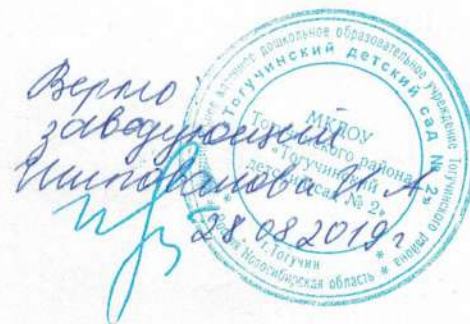 Верно
заведующий
Шиповалова И.А
28.08.2019г
дошкольное образовательное учреждение Тогучинского района
Тогучинский детский сад № 2»
МКДОУ
Тогучинского района
«Тогучинский
детский сад № 2»
г.Тогучин
Новосибирская область